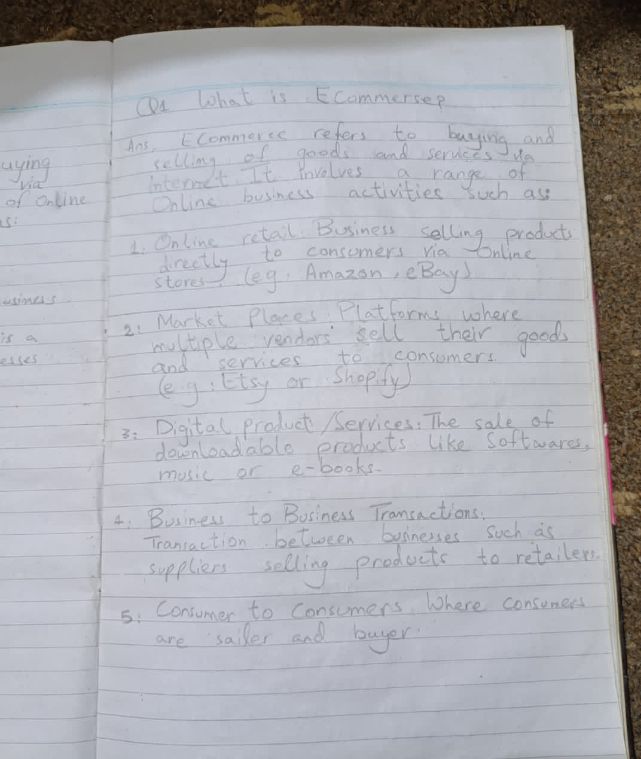 uying
via
of Online
as:
usiness
is a
esses
Q1 What is ECommerse?
Ans, ECommerce refers to buying and
selling of goods and services via
internet. It involves a range of
Online business activities such as:
1. Online retail: Business selling products
directly to consumers via online
stores (eg. Amazon, eBay)
2: Market Places: Platforms where
multiple vendors sell their goods
and services to consumers
(e.g: Etsy or Shopify)
3: Digital product/Services: The sale of
downloadable products like Softwares,
music or e-books.
4. Business to Business Transactions:
Transaction between businesses such as
suppliers selling products to retailers.
5: Consumer to Consumers. Where consumers
are sailer and buyer.